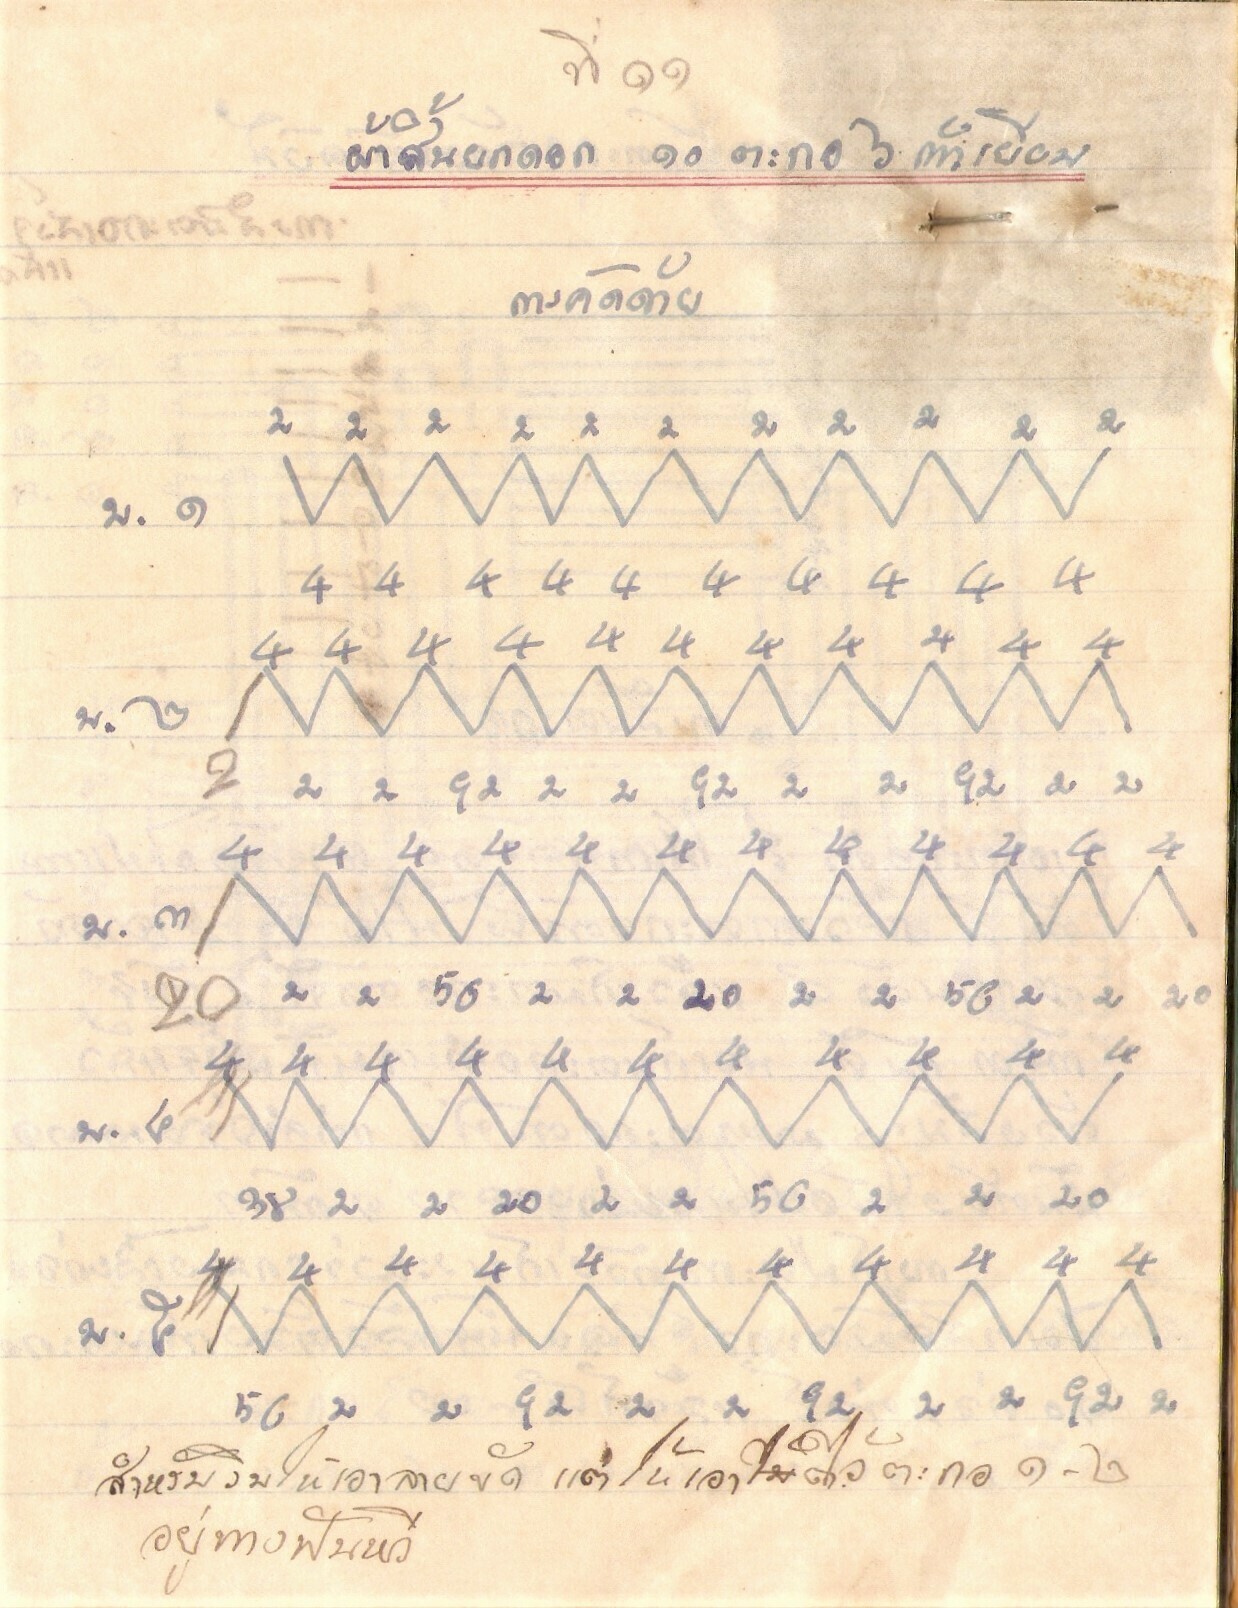 ที่ ๑๑
ผ้าสี่นยกดอก ๑๐ ตะกอ ๖
การคิดด้าย
2 2 2 2 2 2 2 2 2 2 2
ม. ๑
4 4 4 4 4 4 4 4 4 4
4 4 4 4 4 4 4 4 4 4 4
ม. ๒
2 2 2 92 2 2 92 2 2 92 2 2
4 4 4 4 4 4 4 4 4 4 4 4
ม. ๓
20 2 2 56 2 2 20 2 2 56 2 2 20
4 4 4 4 4 4 4 4 4 4 4
ม. ๔
38 2 2 20 2 2 56 2 2 20
4 4 4 4 4 4 4 4 4 4 4
ม. ๕
56 2 2 92 2 2 92 2 2 92 2
สำหรับริมให้เอาลายขัด แต่ให้เอา ตะกอ ๑-๒
อยู่ทางฟันหวี